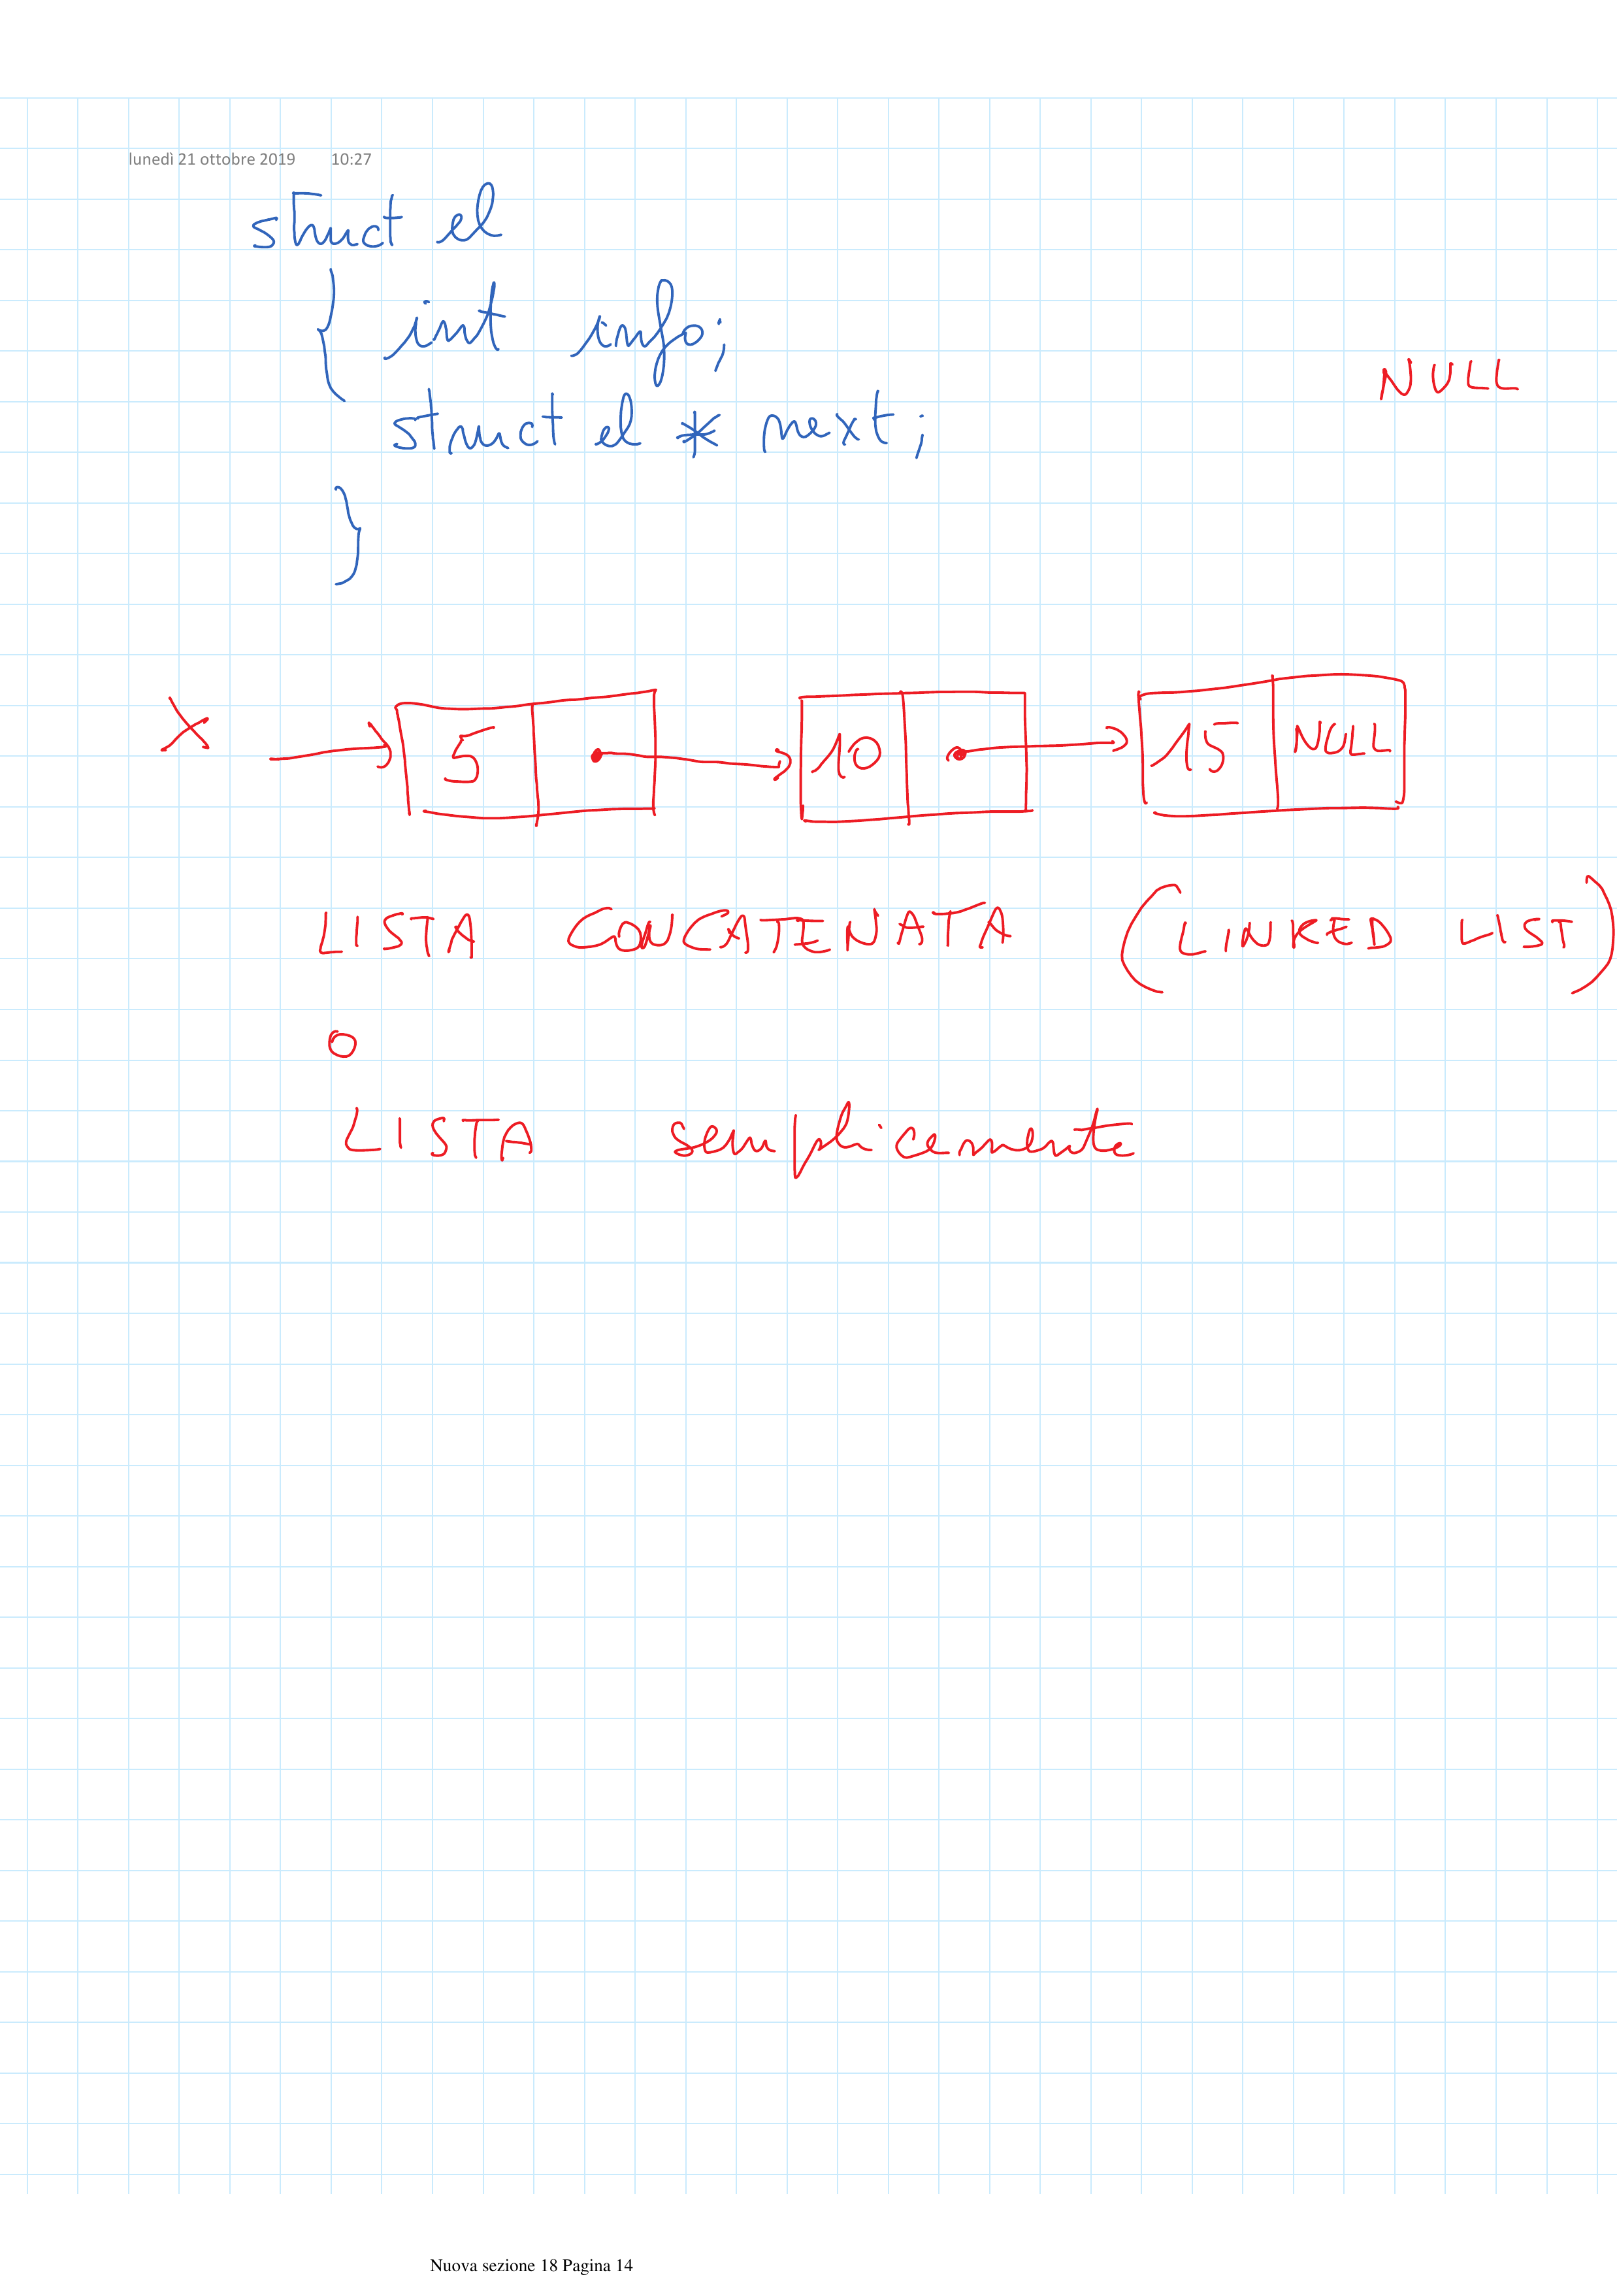 lunedì 21 ottobre 2019 10:27
struct el
{ int info;
NULL
struct el * next;
}
X 5 10 15 NULL
LISTA CONCATENATA (LINKED LIST)
O
LISTA semplicemente
Nuova sezione 18 Pagina 14